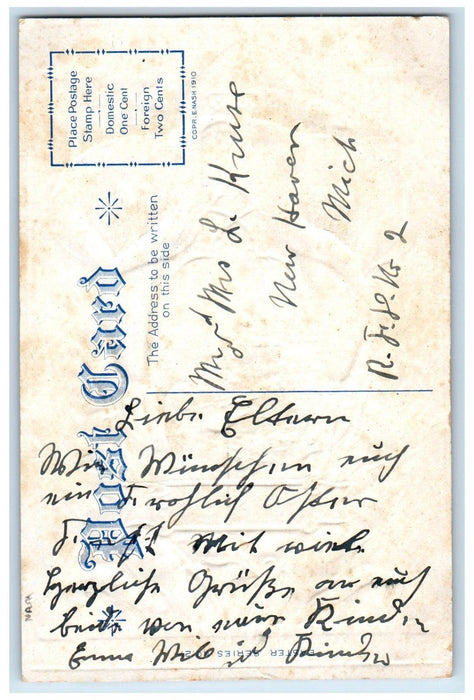 Place Postage
Stamp Here
Domestic
One Cent
Foreign
Two Cents
COPR. E. NASH 1910
Post Card
The Address to be written
on this side
Mr & Mrs L. Kruse
New Haven
Mich
R. F. D. No 2
Liebe Eltern
Wir Wünschen euch
ein Frohlich Oster
Fest Mit viele
Herzliche Grüße an euch
beide von eure Kinder
Emma Kinder
EASTER SERIES NO. 2